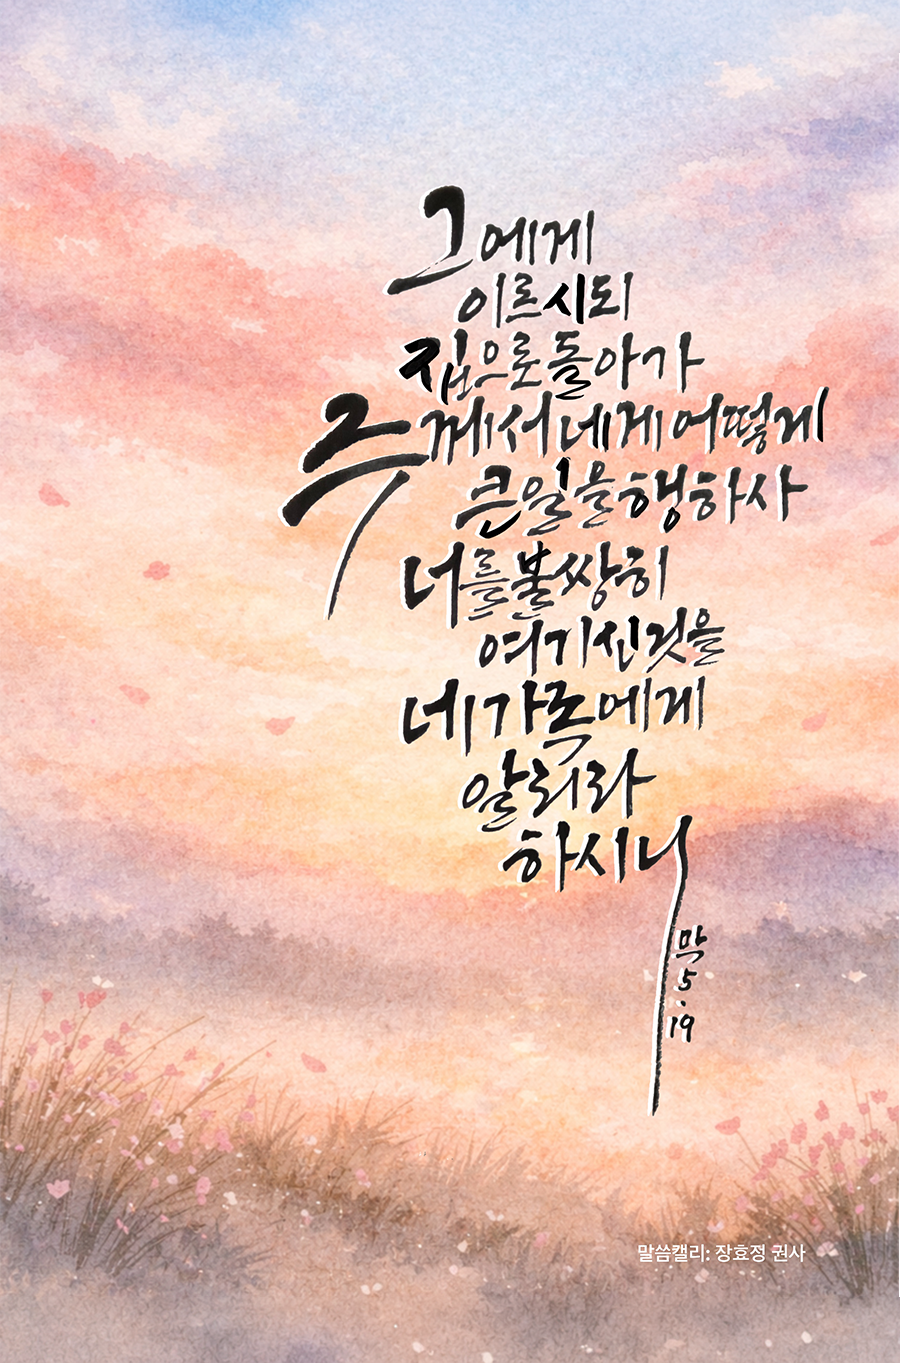 그에게
이르시되
집으로 돌아가
주께서 네게 어떻게
큰 일을 행하사
너를 불쌍히
여기신 것을
네 가족에게
알리라
하시니
막
5
.
19
말씀캘리: 장효정 권사